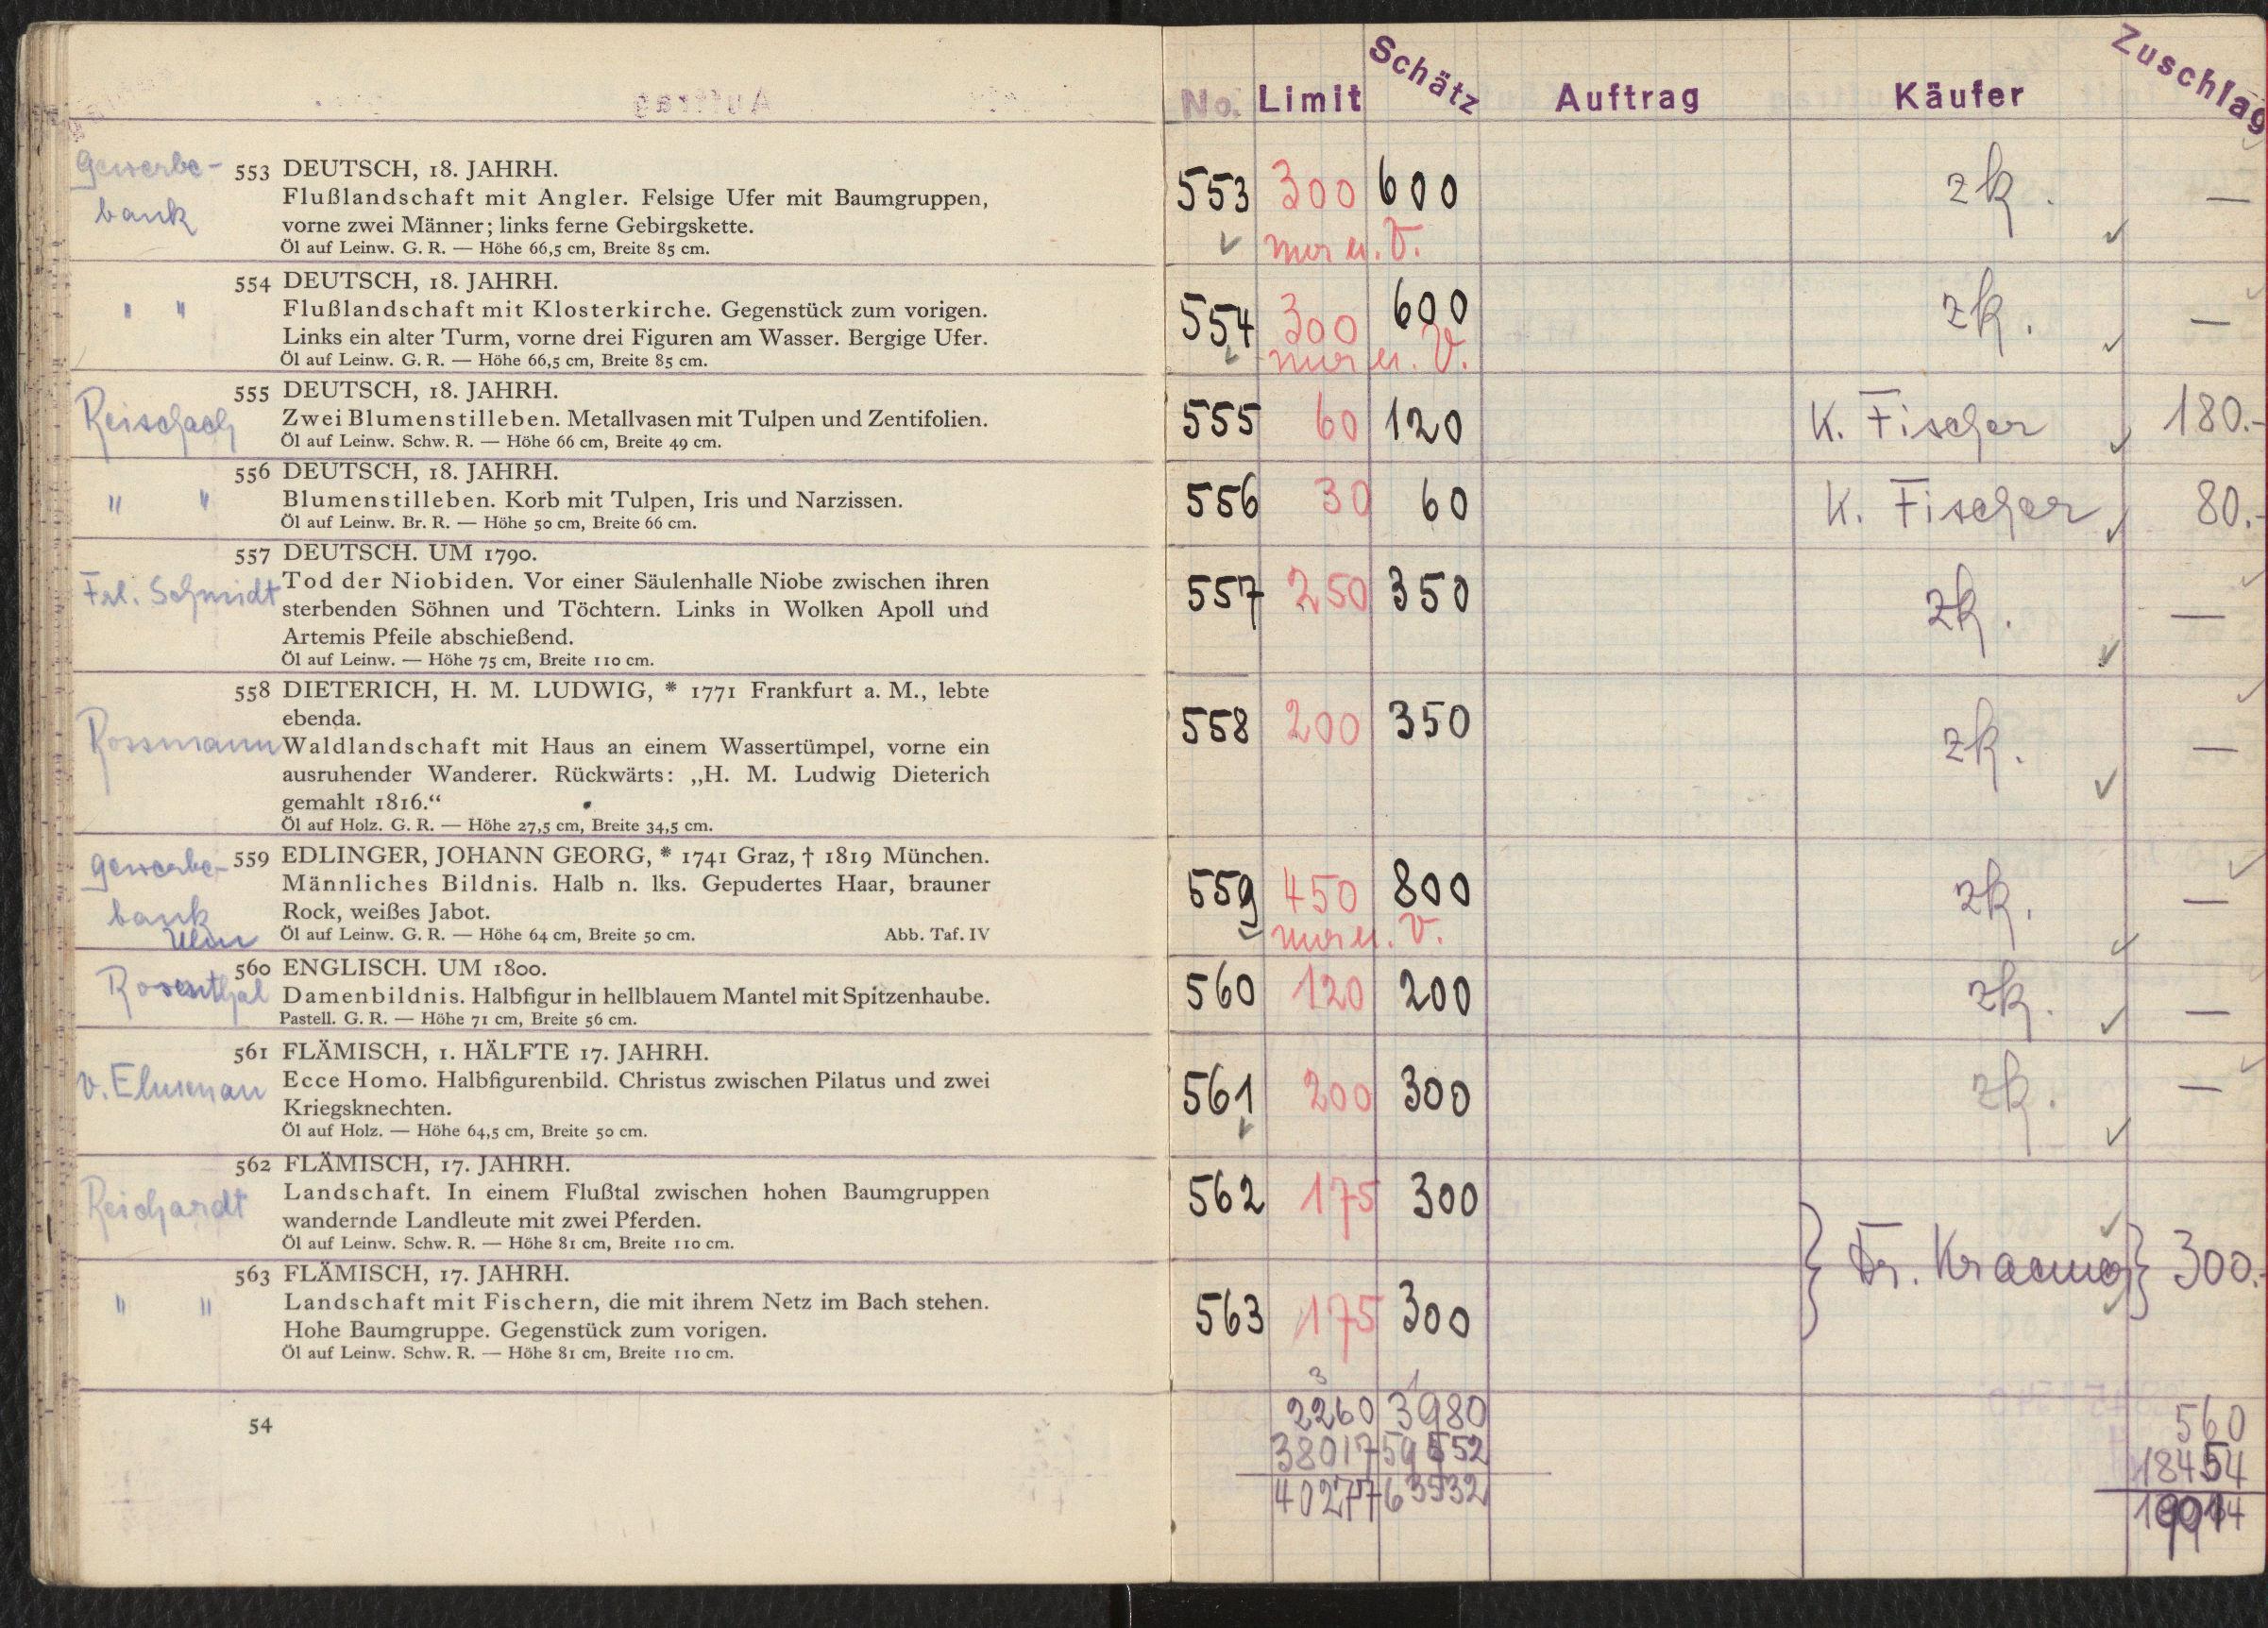 Gewerbe-
bank
553 DEUTSCH, 18. JAHRH.
Flußlandschaft mit Angler. Felsige Ufer mit Baumgruppen,
vorne zwei Männer; links ferne Gebirgskette.
Öl auf Leinw. G. R. — Höhe 66,5 cm, Breite 85 cm.
" "
554 DEUTSCH, 18. JAHRH.
Flußlandschaft mit Klosterkirche. Gegenstück zum vorigen.
Links ein alter Turm, vorne drei Figuren am Wasser. Bergige Ufer.
Öl auf Leinw. G. R. — Höhe 66,5 cm, Breite 85 cm.
Reischach
555 DEUTSCH, 18. JAHRH.
Zwei Blumenstilleben. Metallvasen mit Tulpen und Zentifolien.
Öl auf Leinw. Schw. R. — Höhe 66 cm, Breite 49 cm.
" "
556 DEUTSCH, 18. JAHRH.
Blumenstilleben. Korb mit Tulpen, Iris und Narzissen.
Öl auf Leinw. Br. R. — Höhe 50 cm, Breite 66 cm.
Frl. Schmidt
557 DEUTSCH. UM 1790.
Tod der Niobiden. Vor einer Säulenhalle Niobe zwischen ihren
sterbenden Söhnen und Töchtern. Links in Wolken Apoll und
Artemis Pfeile abschießend.
Öl auf Leinw. — Höhe 75 cm, Breite 110 cm.
Rossmann
558 DIETERICH, H. M. LUDWIG, * 1771 Frankfurt a. M., lebte
ebenda.
Waldlandschaft mit Haus an einem Wassertümpel, vorne ein
ausruhender Wanderer. Rückwärts: „H. M. Ludwig Dieterich
gemahlt 1816.“
Öl auf Holz. G. R. — Höhe 27,5 cm, Breite 34,5 cm.
Gewerbe-
bank
Ulm
559 EDLINGER, JOHANN GEORG, * 1741 Graz, † 1819 München.
Männliches Bildnis. Halb n. lks. Gepudertes Haar, brauner
Rock, weißes Jabot.
Öl auf Leinw. G. R. — Höhe 64 cm, Breite 50 cm. Abb. Taf. IV
Rosenthal
560 ENGLISCH. UM 1800.
Damenbildnis. Halbfigur in hellblauem Mantel mit Spitzenhaube.
Pastell. G. R. — Höhe 71 cm, Breite 56 cm.
v.
561 FLÄMISCH, 1. HÄLFTE 17. JAHRH.
Ecce Homo. Halbfigurenbild. Christus zwischen Pilatus und zwei
Kriegsknechten.
Öl auf Holz. — Höhe 64,5 cm, Breite 50 cm.
Reichardt
562 FLÄMISCH, 17. JAHRH.
Landschaft. In einem Flußtal zwischen hohen Baumgruppen
wandernde Landleute mit zwei Pferden.
Öl auf Leinw. Schw. R. — Höhe 81 cm, Breite 110 cm.
" "
563 FLÄMISCH, 17. JAHRH.
Landschaft mit Fischern, die mit ihrem Netz im Bach stehen.
Hohe Baumgruppe. Gegenstück zum vorigen.
Öl auf Leinw. Schw. R. — Höhe 81 cm, Breite 110 cm.
54
No. Limit Schätz Auftrag Käufer Zuschlag
553 300 600 zk. —
nur u. V.
554 300 600 zk. —
nur u. V.
555 60 120 K. Fischer 180.-
556 30 60 K. Fischer 80.-
557 250 350 zk. —
558 200 350 zk. —
559 450 800 zk. —
nur u. V.
560 120 200 zk. —
561 200 300 zk. —
562 175 300
} Dr. } 300.-
563 175 300
3 1
2260 3980 560
38017 59552 18454
40277 63532